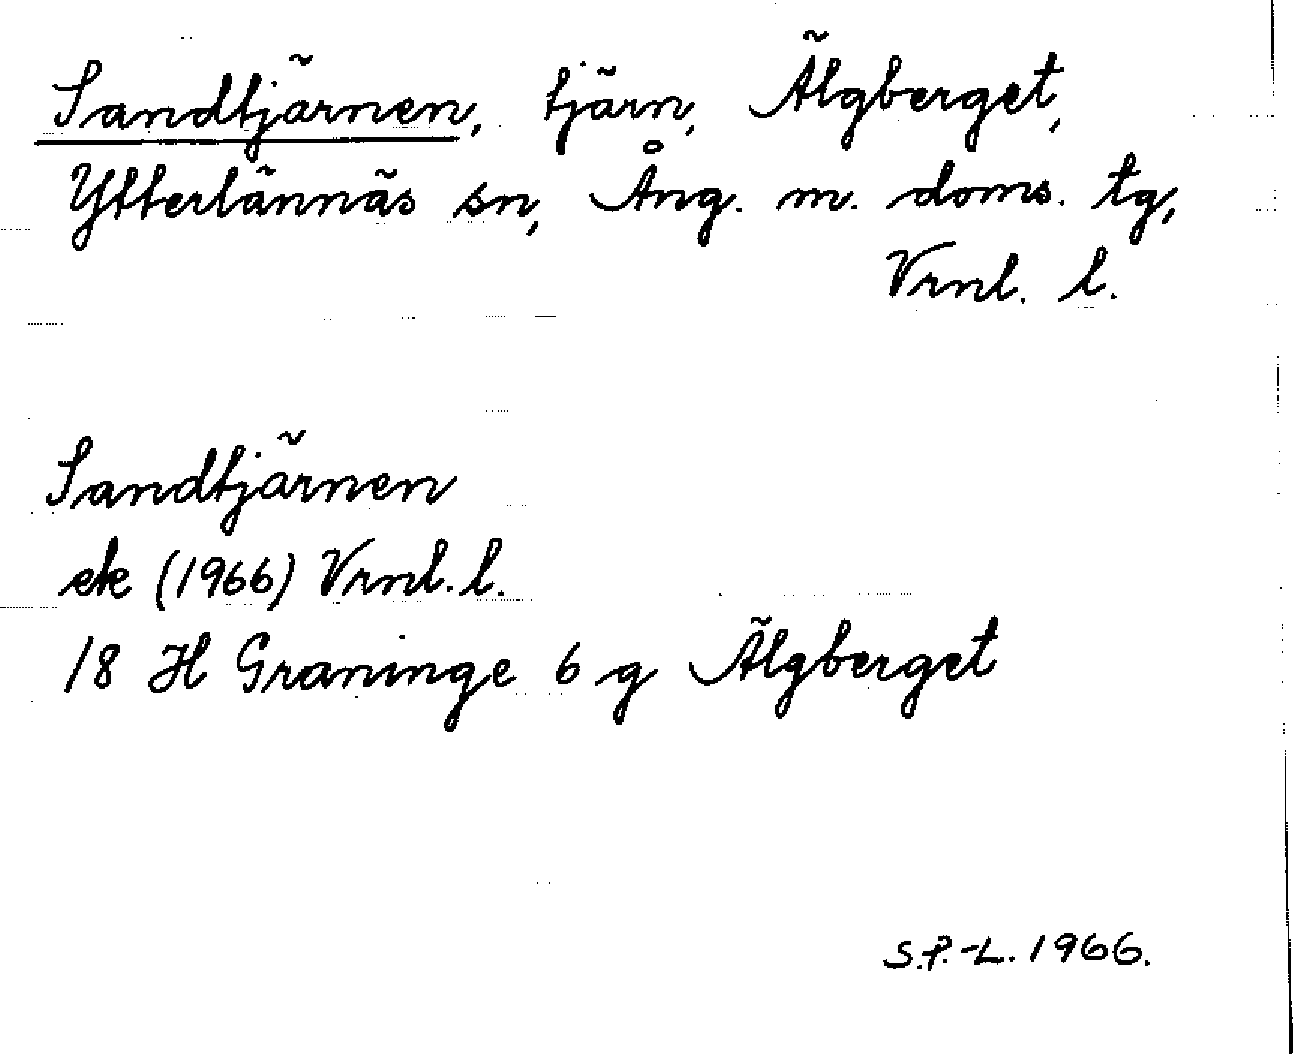 Sandtjärnen, tjärn, Älgberget,
Ytterlännäs sn, Ång. m. doms. tg,
Vrnl. l.
Sandtjärnen
ek (1966) Vrnl. l.
18 H Graninge 6 g Älgberget
S.P.-L. 1966.